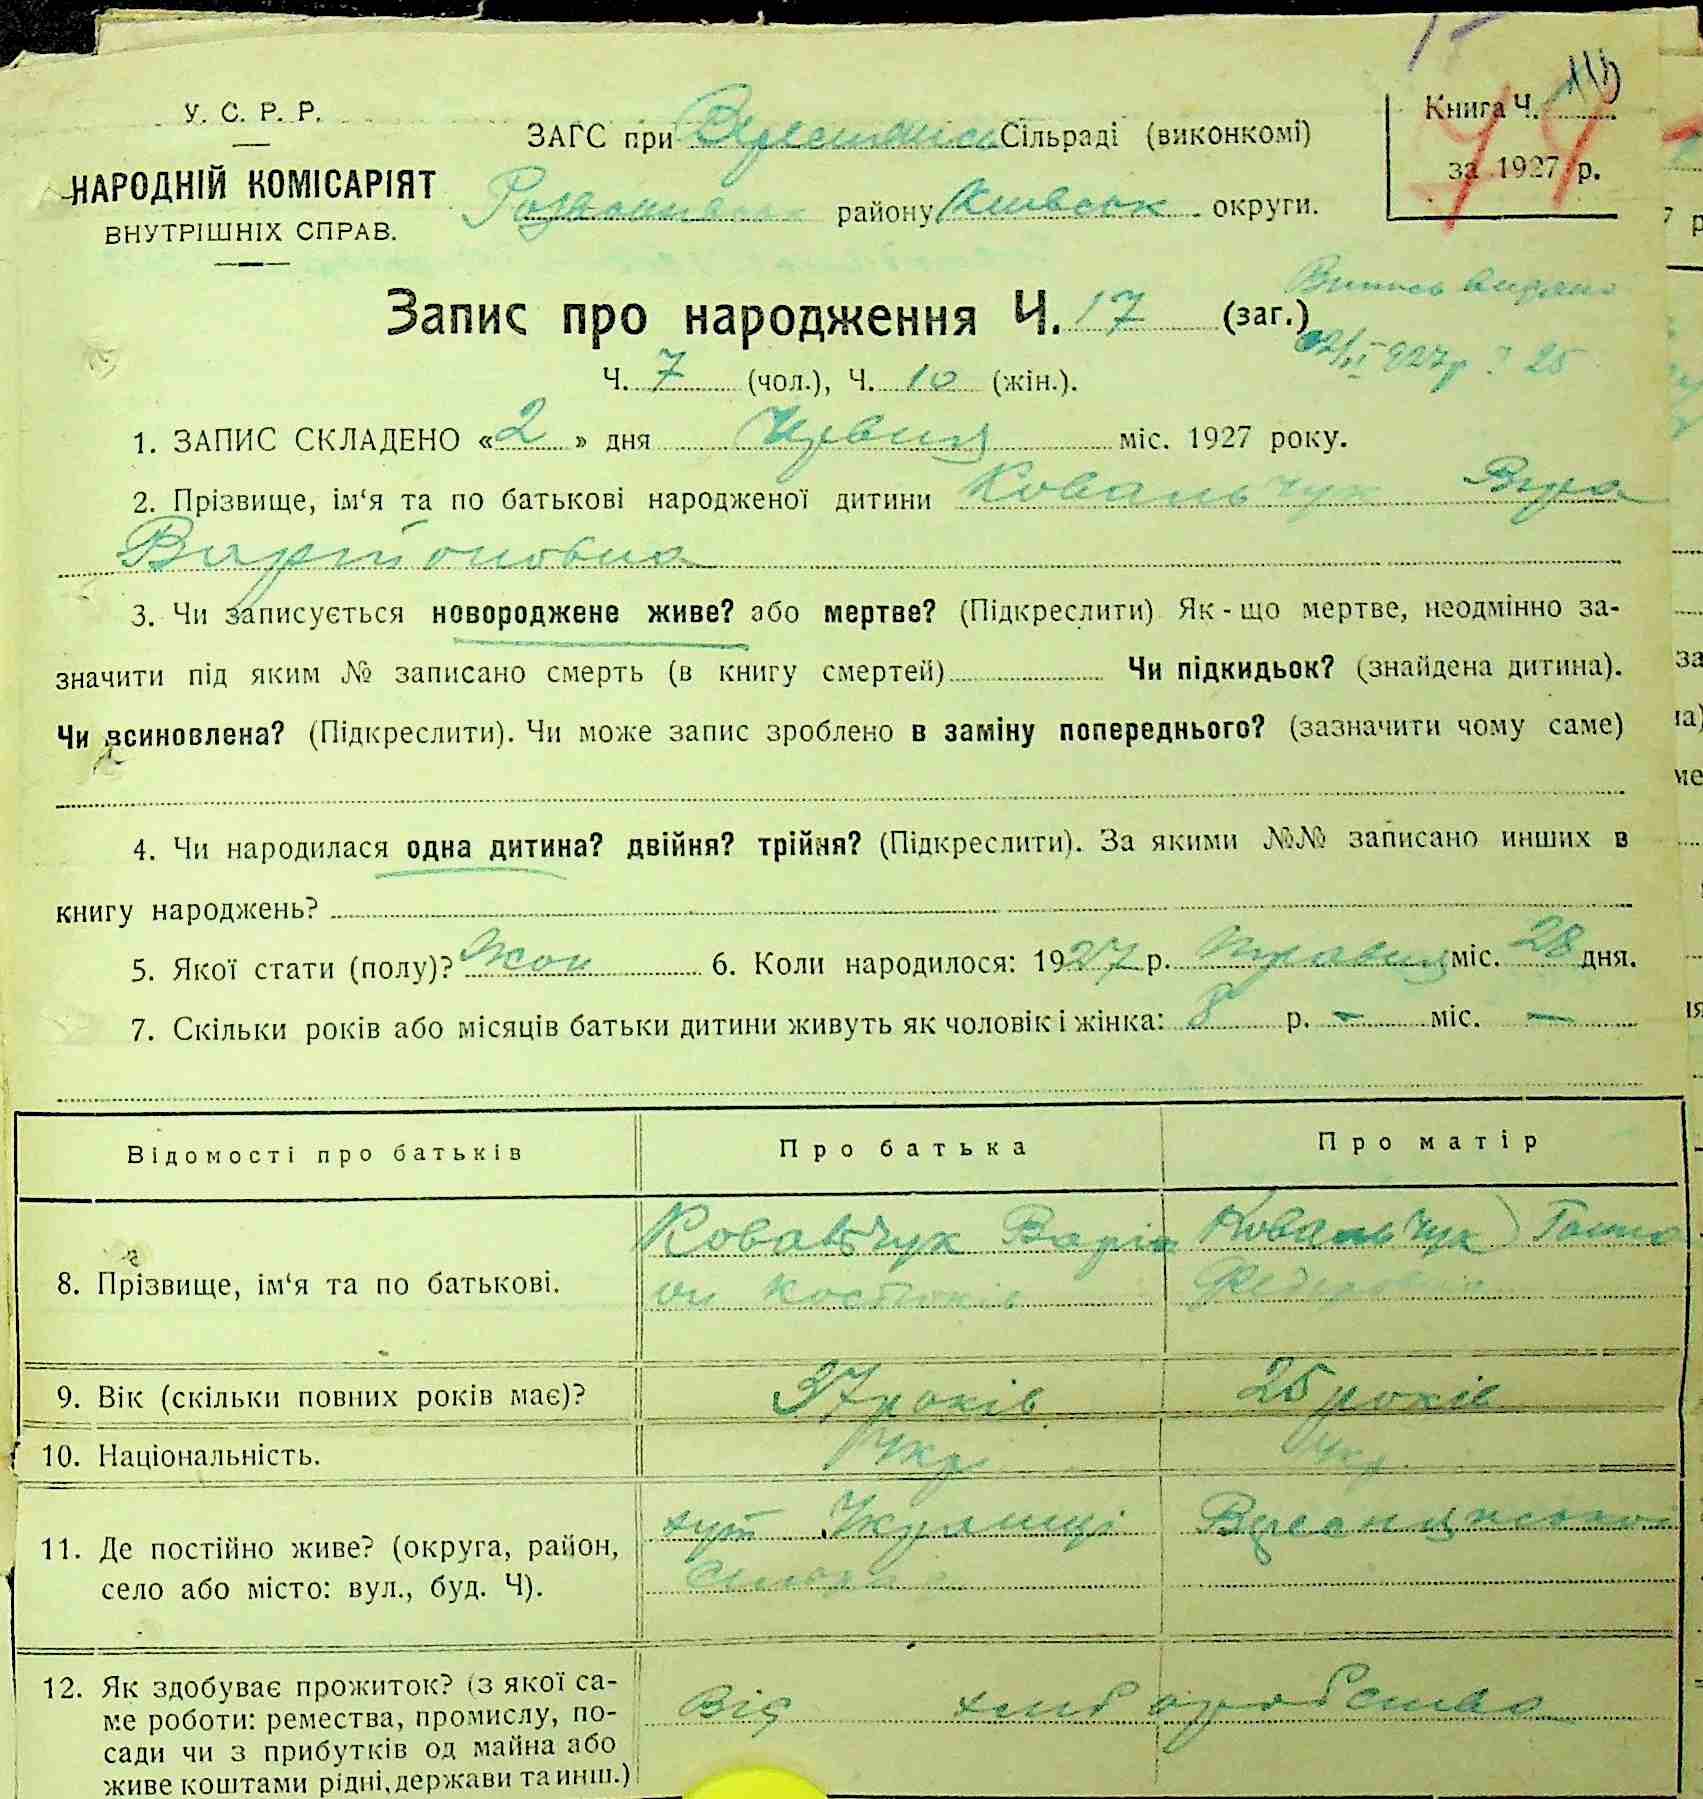 У. С. Р. Р.
НАРОДНІЙ КОМІСАРІЯТ
ВНУТРІШНІХ СПРАВ.
ЗАГС при Сільраді (виконкомі)
району Київськ округи.
Книга Ч.
за 1927 р.
Запис про народження Ч. 17 (заг.)
Випись видано
Ч. 7 (чол.), Ч. 10 (жін.).
1. ЗАПИС СКЛАДЕНО «2» дня Червня міс. 1927 року.
2. Прізвище, ім‘я та по батькові народженої дитини Ковальчук Віра
Варионовна
3. Чи записується новороджене живе? або мертве? (Підкреслити) Як-що мертве, неодмінно за-
значити під яким № записано смерть (в книгу смертей) Чи підкидьок? (знайдена дитина).
Чи всиновлена? (Підкреслити). Чи може запис зроблено в заміну попереднього? (зазначити чому саме)
4. Чи народилася одна дитина? двійня? трійня? (Підкреслити). За якими №№ записано инших в
книгу народжень?
5. Якої стати (полу)? Жон 6. Коли народилося: 1927 р. Травня міс. 28 дня.
7. Скільки років або місяців батьки дитини живуть як чоловік і жінка: 8 р. – міс. —
Відомості про батьків Про батька Про матір
8. Прізвище, ім‘я та по батькові. Ковальчук Варі Ковальчук Ганна
он
9. Вік (скільки повних років має)? 37 років 25 років
10. Національність. Укр. Укр.
11. Де постійно живе? (округа, район,
село або місто: вул., буд. Ч).
хут
12. Як здобуває прожиток? (з якої са-
ме роботи: ремества, промислу, по-
сади чи з прибутків од майна або
живе коштами рідні, держави та инш.)
Від хліборобства